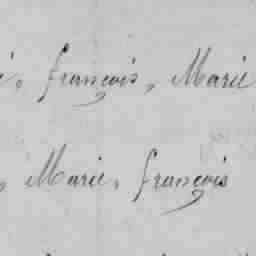 françois, Marie
, Marie, françois